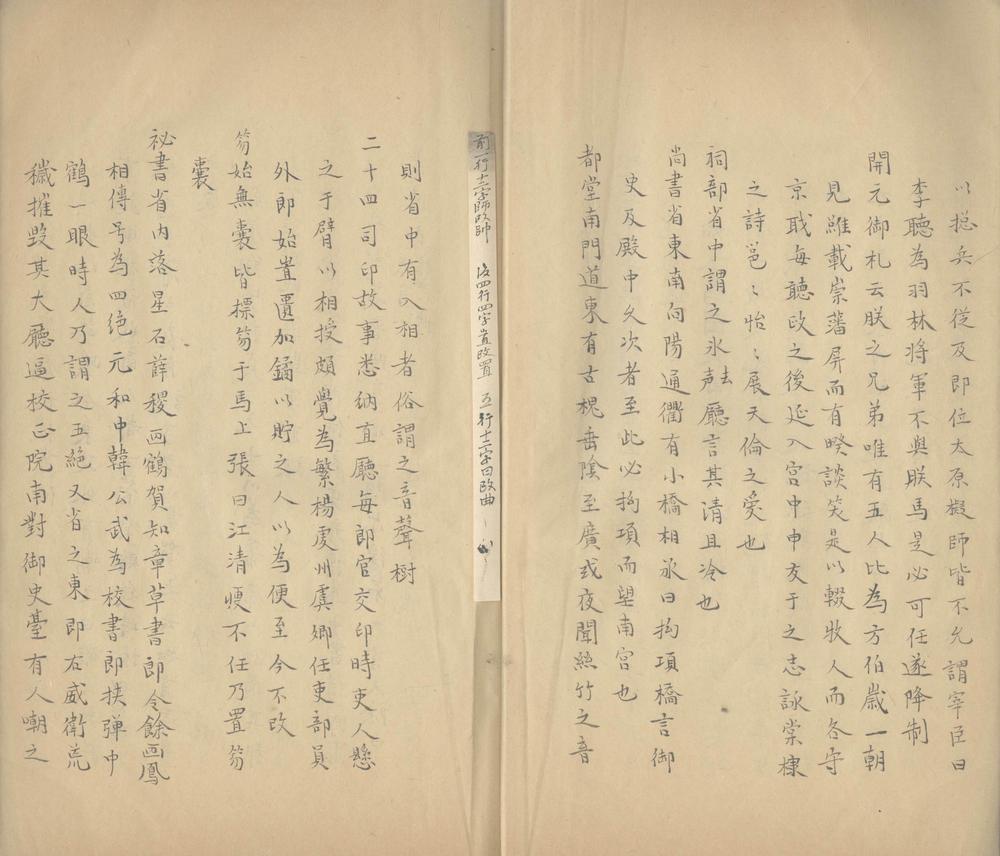 以捴兵不従及即位太原擬師皆不允謂宰臣曰
李聽為羽林将軍不與朕馬是必可任遂降制
開元御札云朕之兄弟唯有五人比為方伯歲一朝
見雖載崇藩屏而有暌談笑是以輟牧人而各守
京職每聽政之後延入宮中申友于之志詠棠棣
之詩邕〻怡〻展天倫之愛也
祠部省中謂之氷声去廳言其清且冷也
尚書省東南向陽通衢有小橋相承曰拗項橋言御
史及殿中久次者至此必拗項而望南宮也
都堂南門道東有古槐垂陰至廣或夜聞絲竹之音
前一行十一字師改帥 後四行四字置改置 五行十二字曰改曲
則省中有入相者俗謂之音聲樹
二十四司印故事悉納直廳每郎官交印時吏人懸
之于臂以相授頗覺為繁楊虔州虞卿任吏部員
外郎始置匱加鐍以貯之人以為便至今不改
笏始無囊皆摽笏于馬上張曰江清㾐不任乃置笏
囊
祕書省内落星石薛稷画鶴賀知章草書郎令餘画鳳
相傳号為四絶元和中韓公武為校書郎挟彈中
鶴一眼時人乃謂之五絶又省之東即右威衛荒
穢摧毀其大廳逼校正院南對御史臺有人嘲之